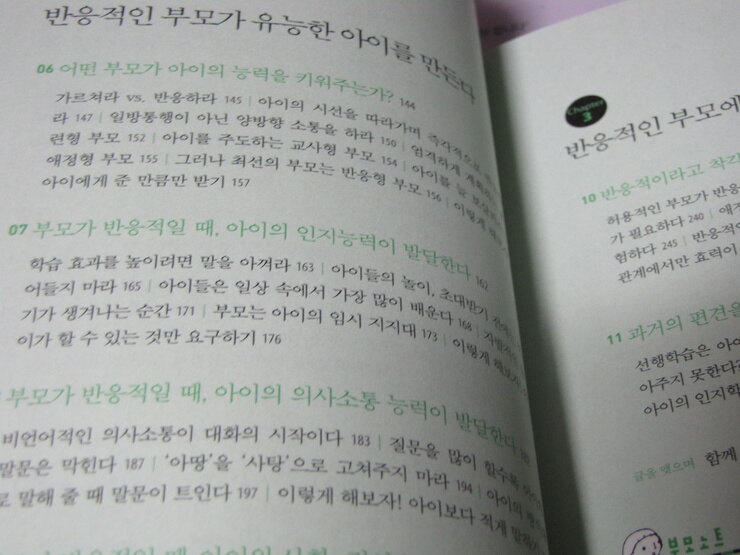 반응적인 부모가 유능한 아이를 만든다
06 어떤 부모가 아이의 능력을 키워주는가? 144
가르쳐라 vs. 반응하라 145 | 아이의 시선을 따라가며 즉각적으로
라 147 | 일방통행이 아닌 양방향 소통을 하라 150 | 엄격하게
련형 부모 152 | 아이를 주도하는 교사형 부모 154 | 아이를 늘
애정형 부모 155 | 그러나 최선의 부모는 반응형 부모 156 | 이렇게
아이에게 준 만큼만 받기 157
07 부모가 반응적일 때, 아이의 인지능력이 발달한다 162
학습 효과를 높이려면 말을 아껴라 163 | 아이들의 놀이, 초대받기 전에
어들지 마라 165 | 아이들은 일상 속에서 가장 많이 배운다 168
기가 생겨나는 순간 171 | 부모는 아이의 임시 지지대 173 | 이렇게 해보자!
이가 할 수 있는 것만 요구하기 176
부모가 반응적일 때, 아이의 의사소통 능력이 발달한다
비언어적인 의사소통이 대화의 시작이다 183 | 질문을 많이 할수록
말문은 막힌다 187 | '아땅'을 '사탕'으로 고쳐주지 마라 194 | 아이의
로 말해 줄 때 말문이 트인다 197 | 이렇게 해보자! 아이보다 적게
Chapter
3
반응적인 부모에
10 반응적이라고 착각
허용적인 부모가 반응
가 필요하다 240 | 애정
험하다 245 | 반응적
관계에서만 효력이
11 과거의 편견을
선행학습은 아이
아주지 못한다
아이의 인지학
글을 맺으며 함께
부모노트